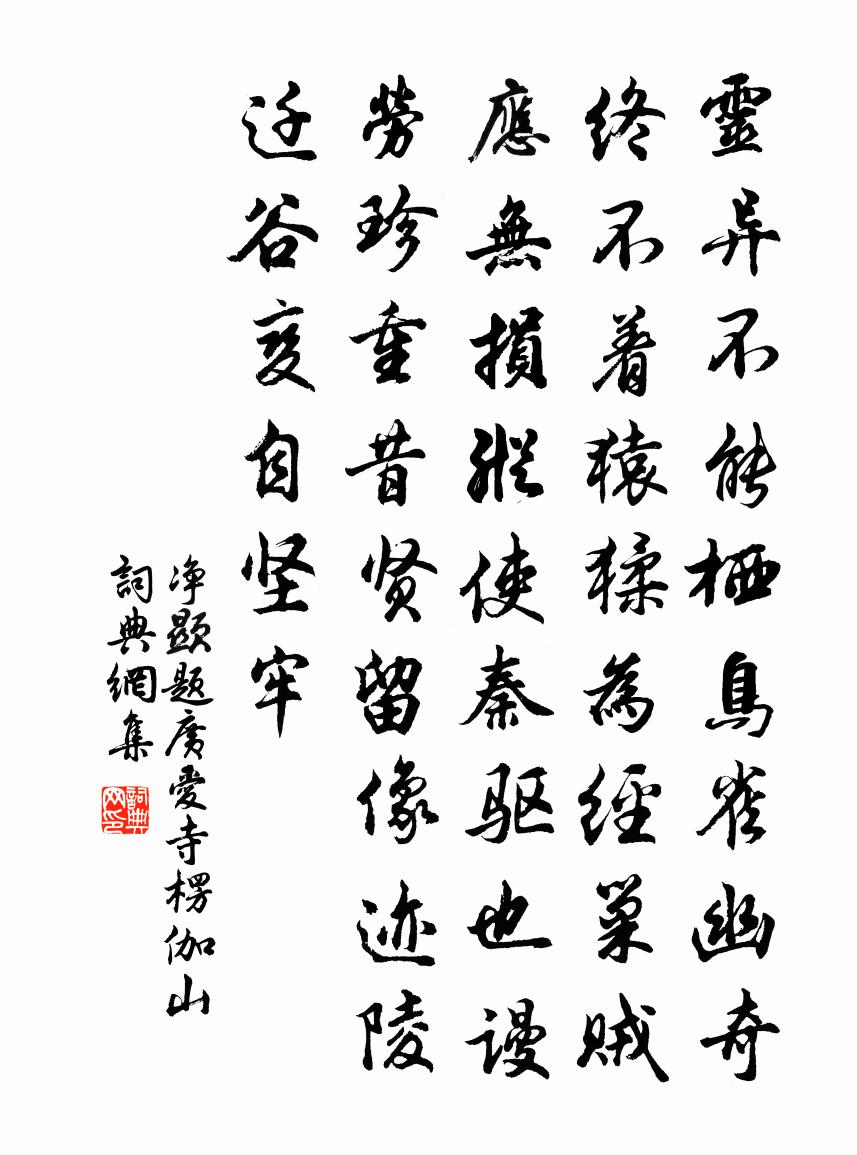 靈异不能栖鳥雀幽奇
終不着猿猱為經巢賊
應無損縱使秦驱也谩
勞珍重昔贤留像迹陵
迁谷变自坚牢
净顯题廣愛寺楞伽山
詞典網集
詞典网印